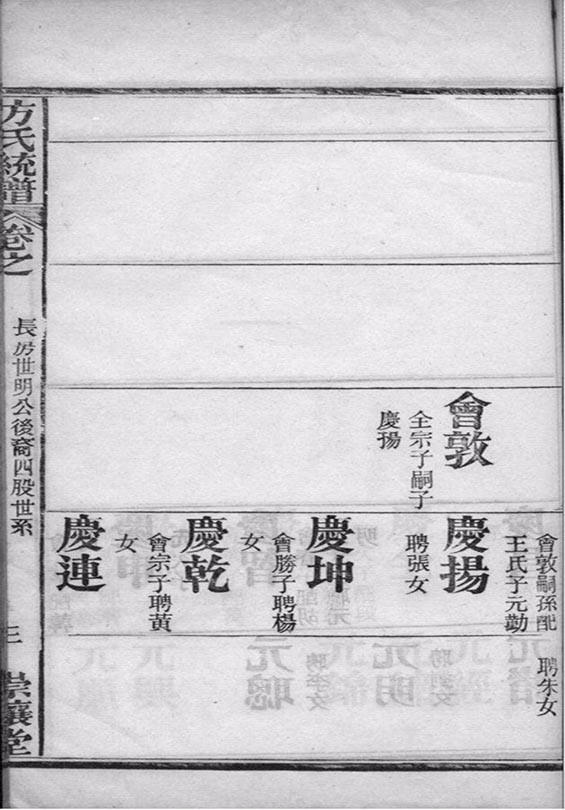 會敦
全宗子嗣子
慶揚
會敦嗣孫配
聘朱女
王氏子元
慶揚
聘張女
慶坤
會勝子聘楊
女
慶乾
會宗子聘黃
女
慶連
方氏統譜
卷之
長房世明公後裔四股世系
三
崇讓堂